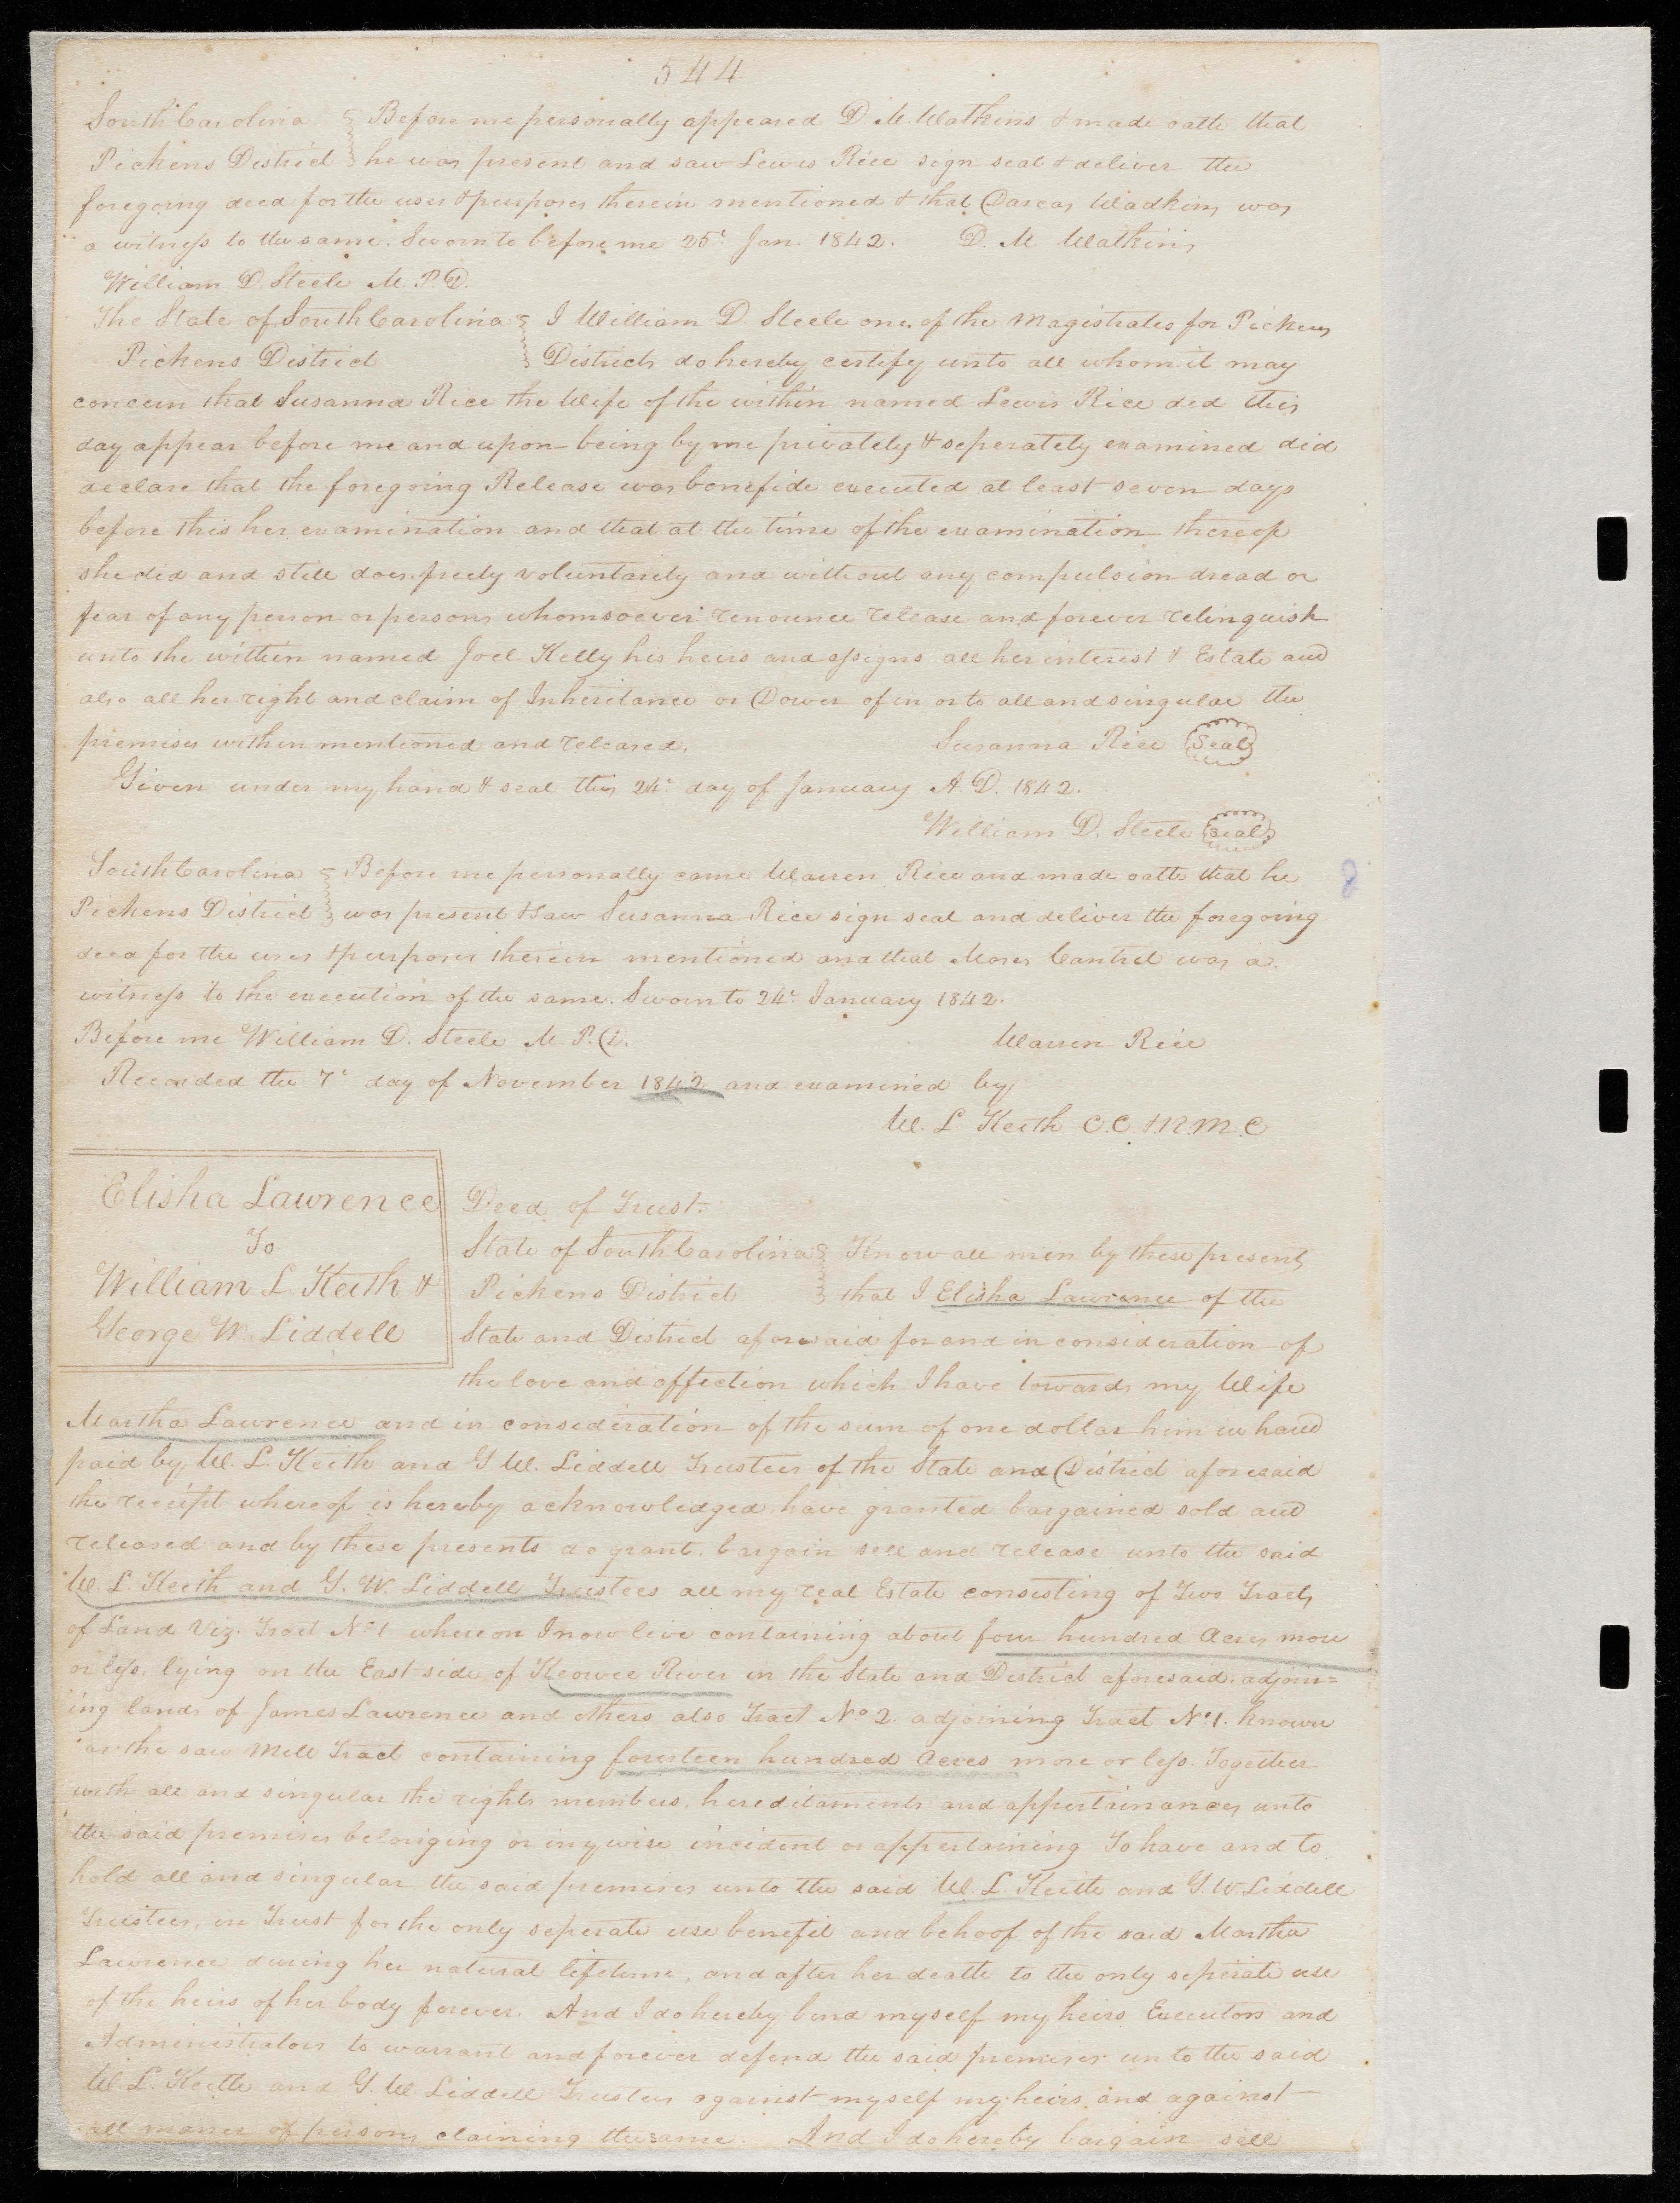 544
South Carolina Before me personally appeared D. M. Watkins & made oath that
Pickens District he was present and saw Lewis Rice sign seal & deliver the
foregoing deed for the uses & purposes therein mentioned & that Darcas Wadkins was
a witness to the same. Sworn to before me 25t Jan. 1842. D. M. Watkins
William D. Steele M.P.D.
The State of South Carolina I William D. Steele one of the Magistrates for Pickens
Pickens District District do hereby certify unto all whom it may
concern that Susanna Rice the Wife of the within named Lewis Rice did this
day appear before me and upon being by me privately & seperately examined did
declare that the foregoing Release was bonefide executed at least seven days
before this her examination and that at the time of the examination thereof
she did and still does freely voluntarily and without any compulsion dread or
fear of any person or persons whomsoever renounce release and forever relinquish
unto the within named Joel Kelly his heirs and assigns all her interest & Estate and
also all her right and claim of Inheritance or Dower of in or to all and singular the
premises within mentioned and released. Susanna Rice Seal
Given under my hand & seal this 24t day of January A.D. 1842.
William D. Steele Seal
South Carolina Before me personally came Warren Rice and made oath that he
Pickens District was present & saw Susanna Rice sign seal and deliver the foregoing
deed for the uses & purposes therein mentioned and that Moses Cantrel was a
witness to the execution of the same. Sworn to 24t January 1842.
Before me William D. Steele M.P.D. Warren Rice
Recorded the 7t day of November 1842 and examined by
W. L. Keith C.C. & R.M.C
Elisha Lawrence
To
William L Keith &
George W. Liddell
Deed of Trust.
State of South Carolina Know all men by these presents
Pickens District that I Elisha Lawrence of the
State and District aforesaid for and in consideration of
the love and affection which I have towards my Wife
Martha Lawrence and in consideration of the sum of one dollar him in hand
paid by W. L. Keith and G W. Liddell Trustees of the State and District aforesaid
the receipt whereof is hereby acknowledged have granted bargained sold and
released and by these presents do grant. bargain sell and release unto the said
W. L. Keith and G. W. Liddell Trustees all my real Estate consisting of Two Tracts
of Land Viz. Tract No 1 whereon I now live containing about four hundred Acres more
or less. lying on the East side of Keowee River in the State and District aforesaid. adjoin=
ing lands of James Lawrence and others also Tract No 2. adjoining Tract No 1. known
as the saw Mill Tract containing fourteen hundred Acres more or less. Together
with all and singular the rights members. hereditaments and appertainances unto
the said premises belonging or inywise incident or appertaining To have and to
hold all and singular the said premises unto the said W. L. Keith and G. W Liddell
Trustees, in Trust for the only seperate use benefit and behoof of the said Martha
Lawrence during her natural lifetime, and after her death to the only seperate use
of the heirs of her body forever. And I do hereby bind myself my heirs Executors and
Administrators to warrant and forever defend the said premises unto the said
W. L. Keith and G. W Liddell Trustees against myself my heirs, and against
all maner of persons claining the same. And I do hereby bargain sell